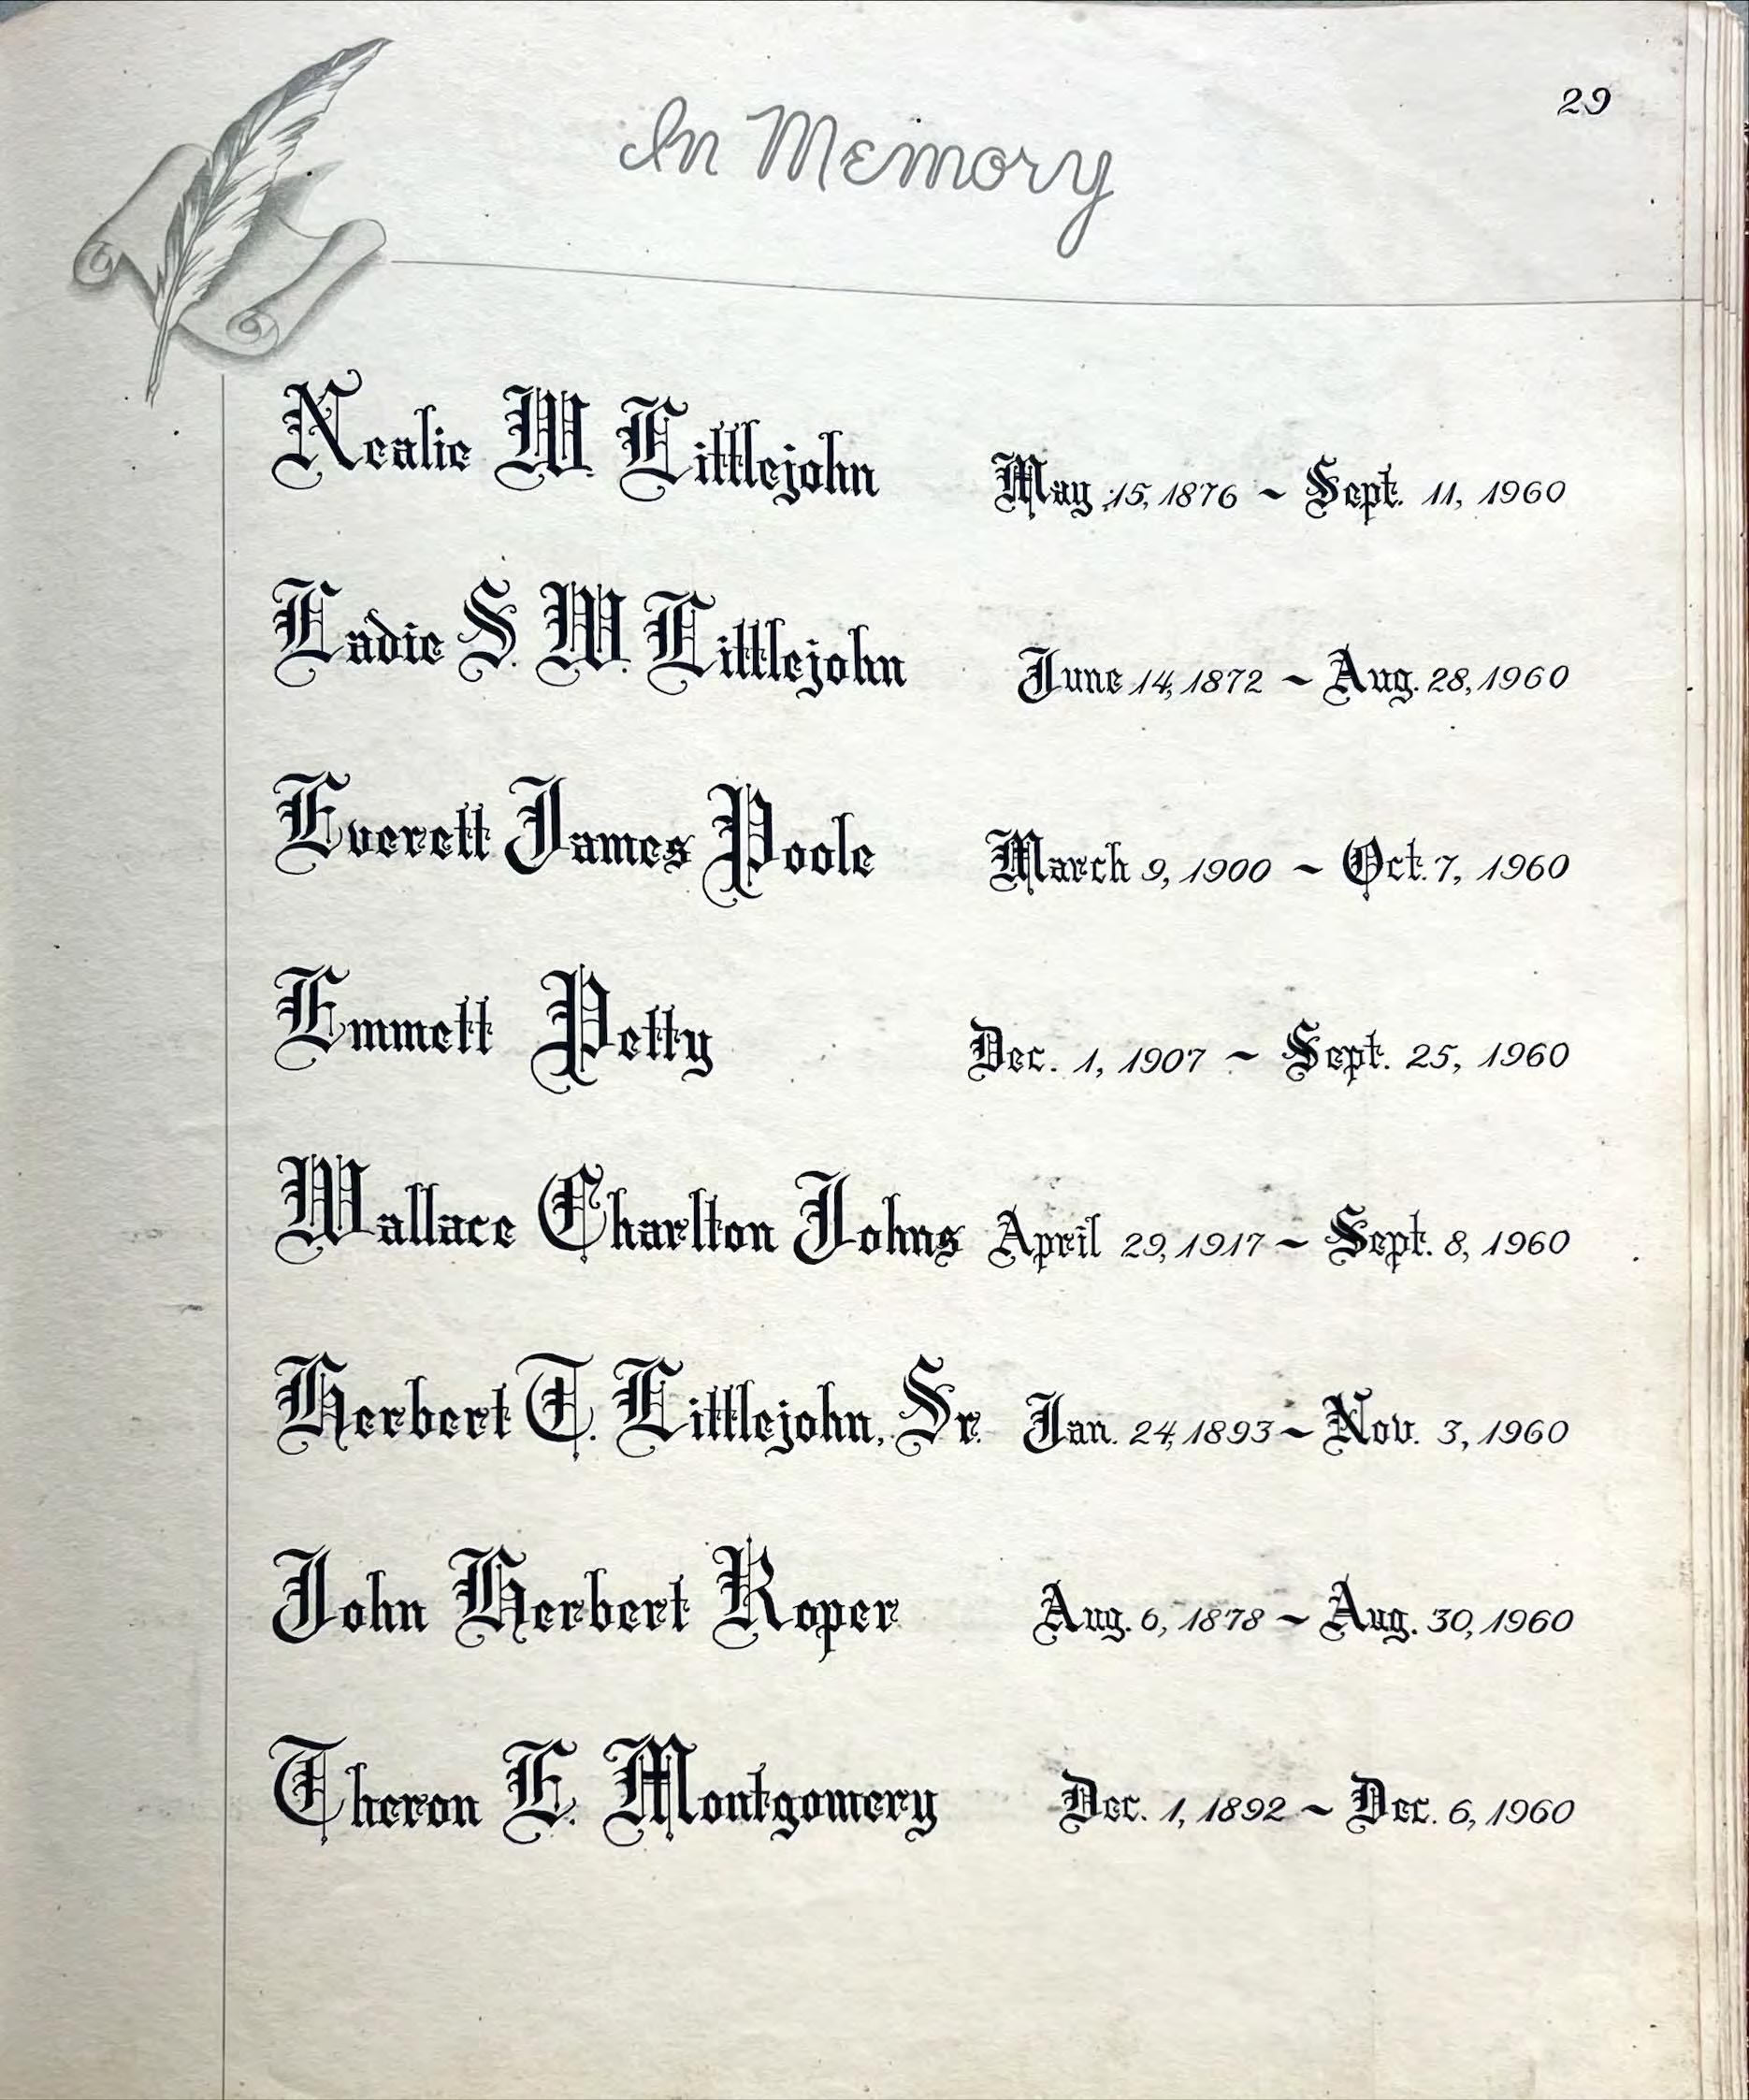 29
In Memory
Nealie W. Littlejohn May 15, 1876 ~ Sept. 11, 1960
Ladie S. W. Littlejohn June 14, 1872 ~ Aug. 28, 1960
Everett James Poole March 9, 1900 ~ Oct. 7, 1960
Emmett Petty Dec. 1, 1907 ~ Sept. 25, 1960
Wallace Charlton Johns April 29, 1917 ~ Sept. 8, 1960
Herbert T. Littlejohn, Sr. Jan. 24, 1893 ~ Nov. 3, 1960
John Herbert Roper Aug. 6, 1878 ~ Aug. 30, 1960
Theron E. Montgomery Dec. 1, 1892 ~ Dec. 6, 1960